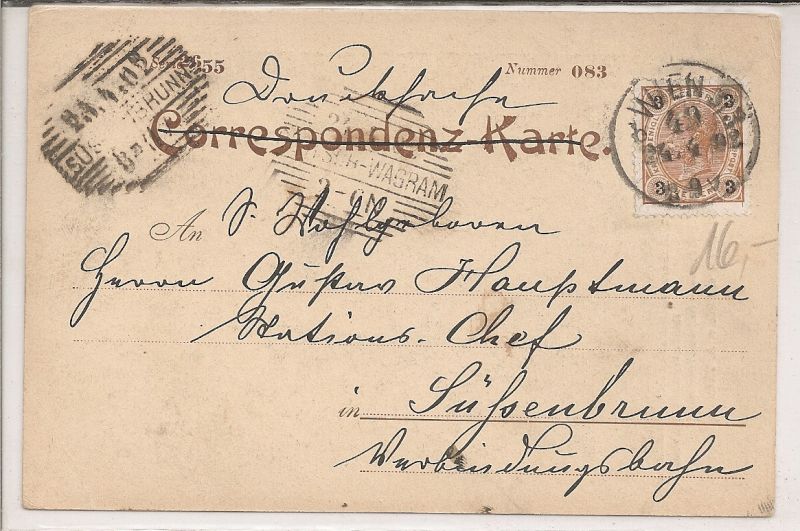 Serie 55 Nummer 083
Drucksache
Correspondenz-Karte.
24.4.02
WIEN
40
24.4.02
9
3
3
3
3
WAGRAM
An S. Wohlgeboren
Herrn Gustav Hauptmann
Stations-Chef
in Süßenbrunn
Verbindungsbahn
16,-